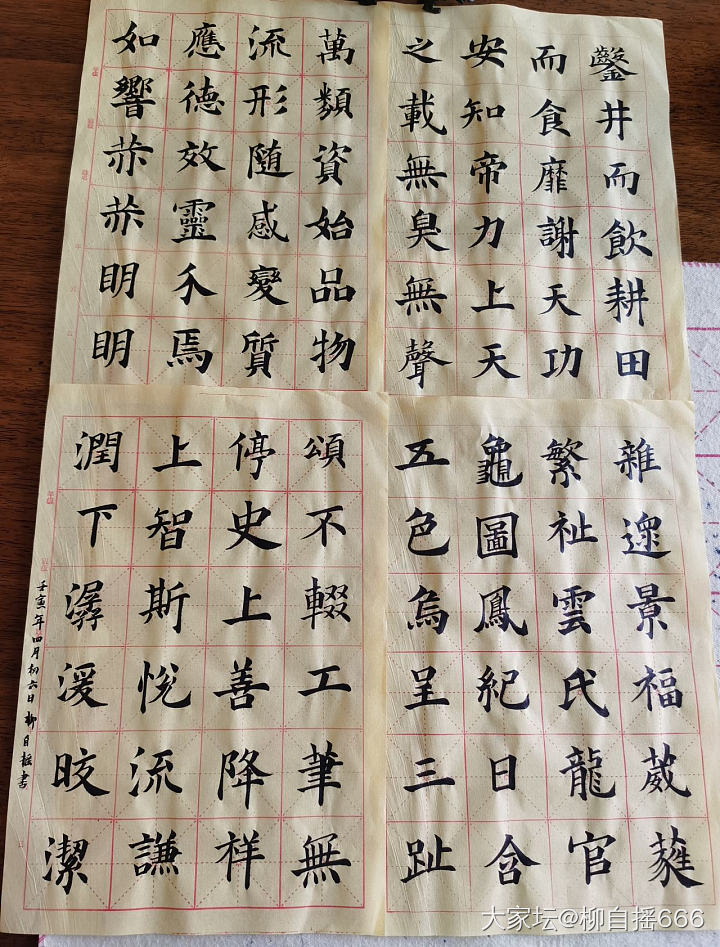 鑿井而飲耕田
而食靡謝天功
安知帝力上天
之載無臭無聲
萬類資始品物
流形隨感變質
應德效靈介焉
如響赫赫明明
雜遝景福葳蕤
繁祉雲氏龍官
龜圖鳳紀日含
五色烏呈三趾
頌不輟工筆無
停史上善降祥
上智斯悅流謙
潤下潺湲皎潔
壬寅年四月初六日柳自摇書
大家坛@柳自摇666